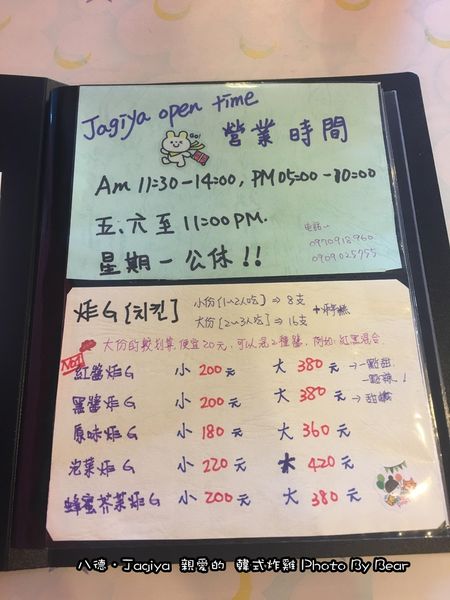 Jagiya open time
GO!
營業時間
Am 11:30-14:00, PM 05:00-10:00
五、六至 11:00 PM.
電話:
0970918960
0909025755
星期一公休!!
炸G [치킨]
小份 [1~2人吃] ⇒ 8支
大份 [2~3人吃] ⇒ 16支
大份的較划算便宜20元, 可以混2種醬, 例如: 紅黑混合
No1
紅醬炸G 小 200 元 大 380 元 →一點甜一點辣!
黑醬炸G 小 200 元 大 380 元 →甜鹹
原味炸G 小 180 元 大 360 元
泡菜炸G 小 220 元 大 420 元
蜂蜜芥茉炸G 小 200 元 大 380 元
八德·Jagiya 親愛的 韓式炸雞 Photo By Bear